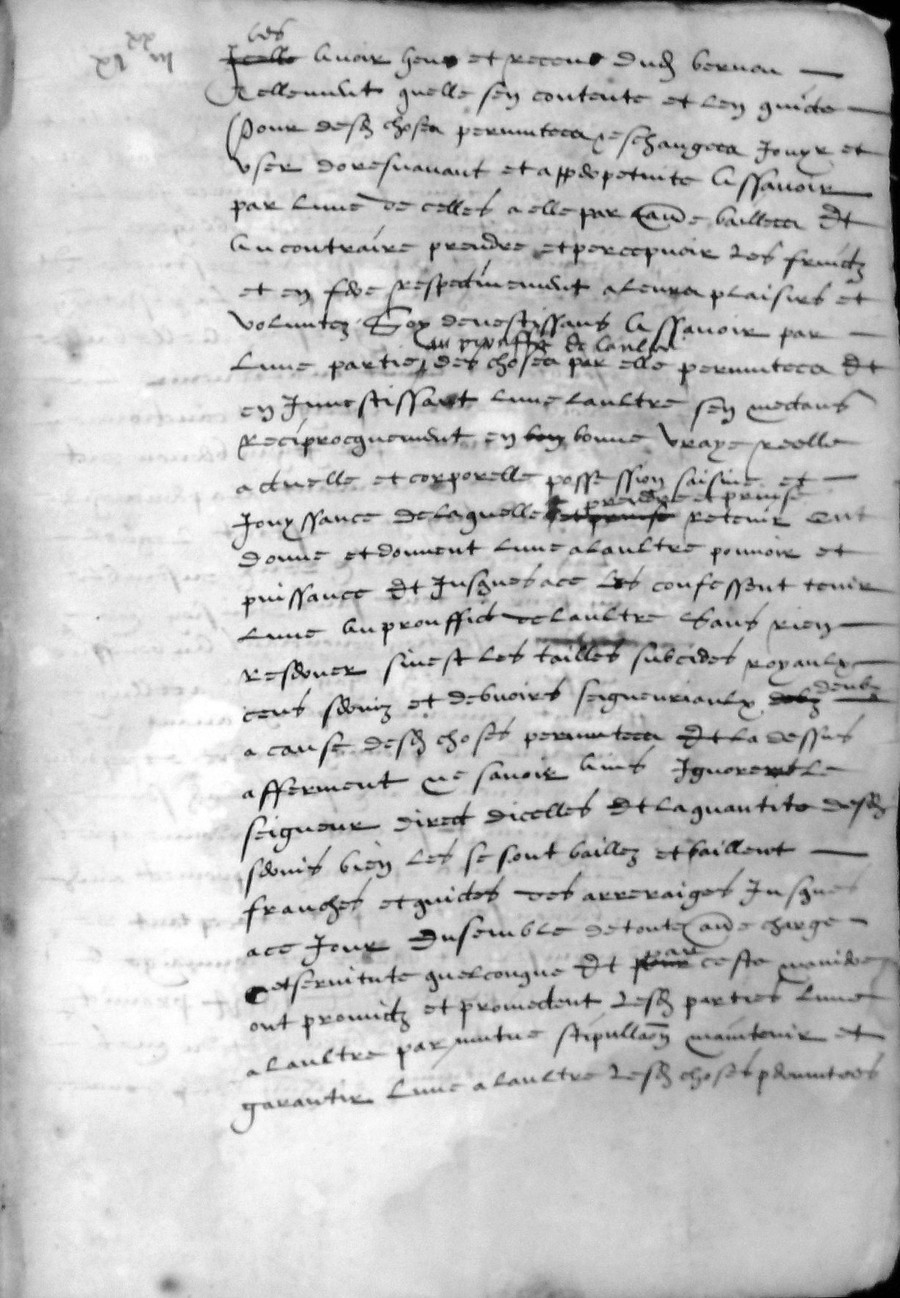 les
Icelle avoir heu et receu dud bernou
Tellement quelle sen contente et len quicte
Pour desd choses permutees eschangees Jouyr et
user doresnavant et a perpetuite assavoir
par lune de celles a elle par baillees Et
au contraire prendre et percepvoir les fruictz
et en respectivement a leurs plaisirs et
voluntez Soy devestissans assavoir par
au prouffit de laultre
lune partie des choses par elle permutees Et
en Investissant lune laultre sen mectans
Reciprocquement en bon bonne vraye reelle
actuelle et corporelle possession saisine et
prendre et prinse
Jouyssance de laquelle et prinse retenir ont
donne et donnent lune a laultre povoir et
puissance Et Jusques a ce les confessent tenir
lune au prouffict de laultre Sans rien
reserver sinest les tailles subcides royaulx
deubz
cens servis et debvoirs seigneuriaulx
a cause desd choses permutees Et la dessus
afferment ne savoir ains Ignorer le
seigneur direct dicelles Et la quantite desd
servis bien les se sont baillez et baillent
franches et quictes des arreraiges Jusques
a ce Jour Ensemble de toute charge
par
et servitute quelconque Et pour ceste maniere
ont promictz et promectent lesd parties lune
a laultre par mutue stipullaon maintenir et
garantir lune a laultre lesd choses permutees